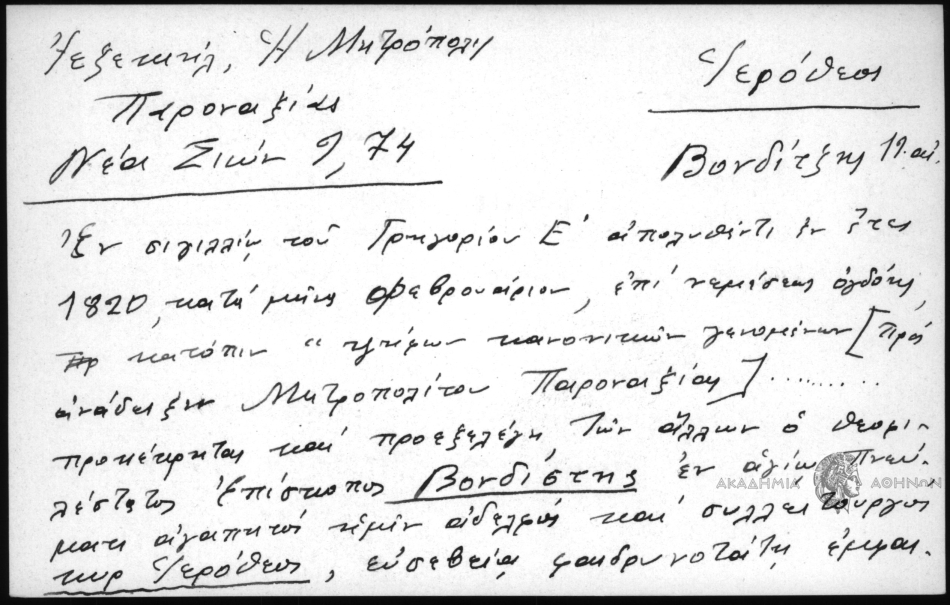 Ἰεζεκιήλ, Ἡ Μητρόπολις
Παροναξίας
Νέα Σιών 9, 74
Ἱερόθεος
Βονδίτζης 19. αἰ.
Ἐν σιγιλλίῳ τοῦ Γρηγορίου Ε΄ ἀπολυθέντι ἐν ἔτει
1820, κατὰ μῆνα Φεβρουάριον, ἐπινεμήσεως ὀγδόης,
κατόπιν " ψήφων κανονικῶν γενομένων [πρὸς
ἀνάδειξιν Μητροπολίτου Παροναξίας] .........
προκέκριται καὶ προεξελέγη τῶν ἄλλων ὁ θεοφι-
λέστατος Ἐπίσκοπος Βονδίστης ἐν ἁγίῳ Πνεύ-
ματι ἀγαπητὸς ἡμῖν ἀδελφὸς καὶ συλλειτουργὸς
κὺρ Ἱερόθεος, εὐσεβείᾳ φαιδρυνοτάτῃ ἐμφαι-
ΑΚΑΔΗΜΙΑ ΑΘΗΝΩΝ